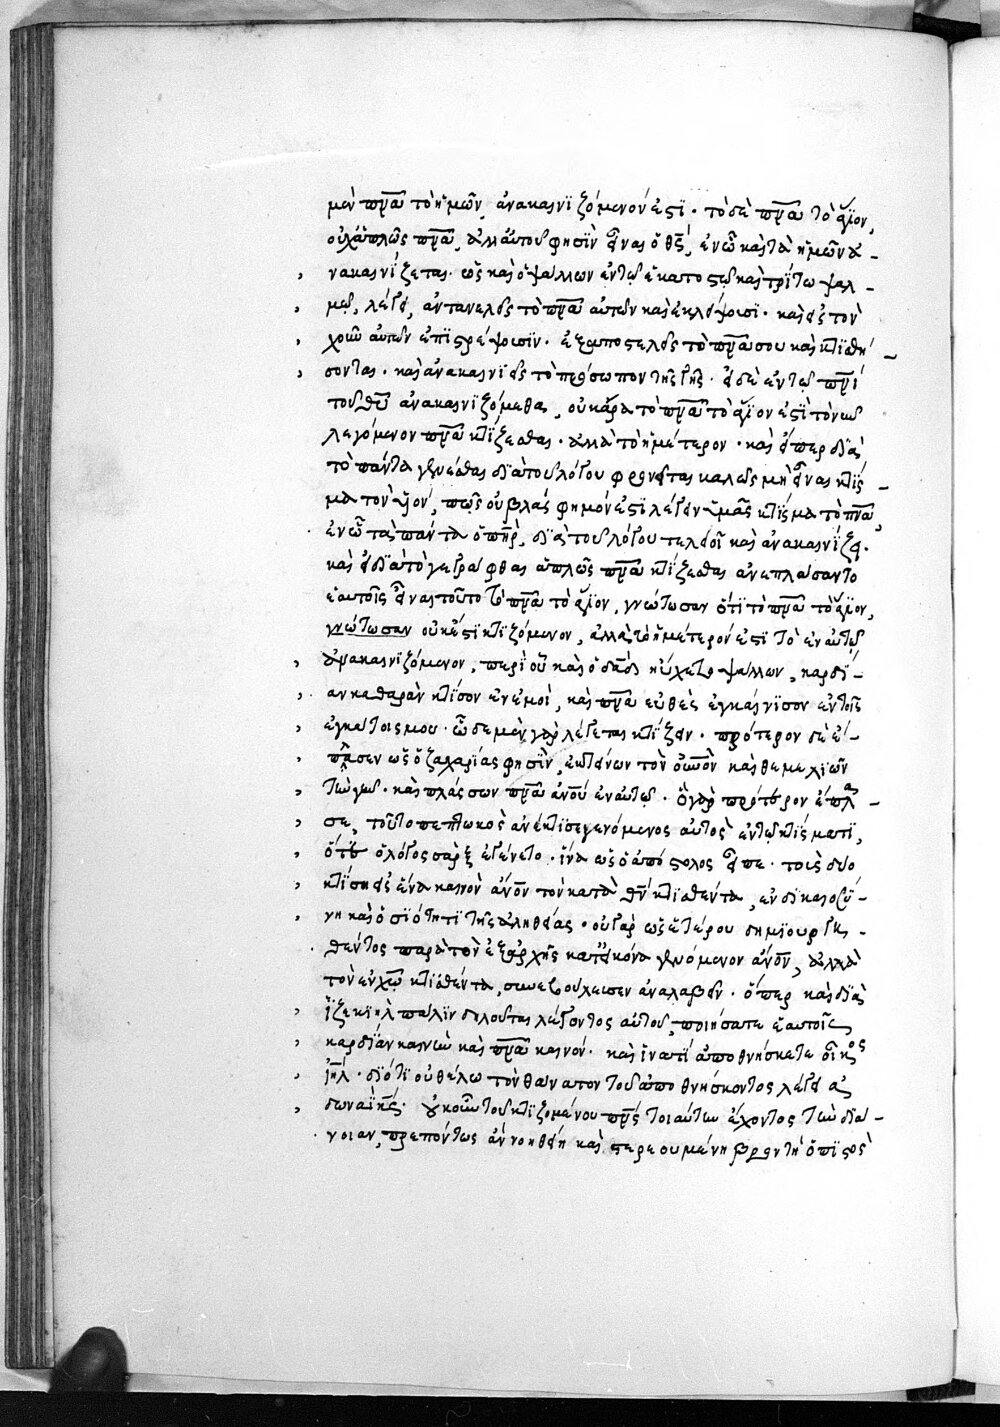 μὲν πν̅α̅ τὸ ἡμῶν, ἀνακαινιζόμενόν ἐστι · τὸ δὲ πν̅α̅ τὸ ἅγϊον,
οὐχ ἁπλῶς πν̅α̅, ἀλλ' αὐτοῦ φησὶν εἶναι ὁ θς̅, ἐν ὧ καὶ τὰ ἡμῶν ἀ-
νακαινίζεται · ὡς καὶ ὁ ψάλλων ἐν τῷ ἑκατοστῷ καὶ τρίτω ψαλ-
μῷ, λέγει, ἀντανελεῖς τὸ πν̅α̅ αὐτῶν καὶ ἐκλείψουσι · καὶ εἰς τὸν
χοῦν αὐτῶν ἐπιστρέψουσιν · ἐξαποστελεῖς τὸ πν̅α̅ σου καὶ κτισθή-
σονται · καὶ ἀνακαινιεῖς τὸ πρόσωπον τῆς γῆς · εἰ δὲ ἐν τῷ πν̅ι̅
τοῦ θυ̅ ἀνακαινιζόμεθα, οὐκ ἄρα τὸ πν̅α̅ τὸ ἅγϊον ἐστὶ τὸ νῦν
λεγόμενον πν̅α̅ κτίζεσθαι · ἀλλὰ τὸ ἡμέτερον · καὶ εἴπερ διὰ
τὸ πάντα γενέσθαι διὰ τοῦ λόγου φρονεῖται καλῶς μὴ εἶναι κτίσ-
μα τὸν υἱόν, πῶς οὐ βλάσφημόν ἐστι λέγειν ὑμᾶς κτίσμα τὸ πν̅α̅,
ἐν ὧ τὰ πάντα ὁ πη̅ρ̅, διὰ τοῦ λόγου τελειοῖ καὶ ἀνακαινίζει ·
καὶ εἰ διὰ τὸ γεγράφθαι ἁπλῶς πν̅α̅ κτίζεσθαι ἀνεπλάσαντο
ἑαυτοῖς εἶναι τοῦτο τὸ πν̅α̅ τὸ ἅγϊον, γνώτωσαν ὅτι τὸ πν̅α̅ τὸ ἅγϊον,
γνώτωσαν οὐκ ἔστι κτιζόμενον, ἀλλὰ τὸ ἡμέτερόν ἐστι τὸ ἐν αὐτῷ
ἀνακαινιζόμενον, περὶ οὗ καὶ ὁ δα̅δ̅ ηὔχετο ψάλλων, καρδί-
αν καθαρὰν κτίσον ἐν ἐμοὶ, καὶ πν̅α̅ εὐθὲς ἐγκαίνϊσον ἐν τοῖς
ἐγκάτοις μου · ὧδε μὲν γὰρ λέγεται κτίζειν · πρότερον δὲ ἔ-
πλασεν ὡς ὁ ζαχαρίας φησὶν, ἐκτείνων τὸν οὐν̅ο̅ν̅ καὶ θεμελιῶν
τὴν γῆν · καὶ πλάσσων πν̅α̅ ἀν̅ο̅υ̅ ἐν αὐτῷ · ὃ γὰρ πρότερον ἔπλα-
σε, τοῦτο πεπτωκὸς ἀνέκτισε γενόμενος αὐτὸς ἐν τῷ κτίσματι,
ὅτε ὁ λόγος σὰρξ ἐγένετο · ἵνα ὡς ὁ ἀπόστολος εἶπε · τοὺς δύο
κτίση εἰς ἕνα καινὸν ἄν̅ο̅ν̅ τὸν κατὰ θν̅ κτισθέντα, ἐν δικαιοσύ-
νη καὶ ὁσϊότητϊ τῆς ἀληθείας · οὐ γὰρ ὡς ἑτέρου δημϊουργη-
θέντος παρὰ τὸν ἐξ ἀρχῆς κατ' εἰκόνα γενόμενον ἄν̅ο̅ν̅, ἀλλὰ
τὸν ἐν χω̅ κτισθέντα, συνεβούλευσεν ἀναλαβεῖν · ὅπερ καὶ διὰ
ϊεζεκιὴλ πάλιν δηλοῦται λέγοντος αὐτοῦ, ποιήσατε ἑαυτοῖς
καρδίαν καινὴν καὶ πν̅α̅ καινόν · καὶ ἱνατί ἀποθνήσκετε οἶκος
ϊη̅λ̅ · διότι οὐ θέλω τὸν θάνατον τοῦ ἀποθνήσκοντος λέγει ἀ-
δωναῒ κς̅ · οὐκοῦν τοῦ κτιζομένου πν̅ς̅ τοιαύτην ἔχοντος τὴν διά-
νοιαν, πρεπόντως ἂν νοηθείη καὶ στερεουμένη βροντὴ ὁ πιστὸς